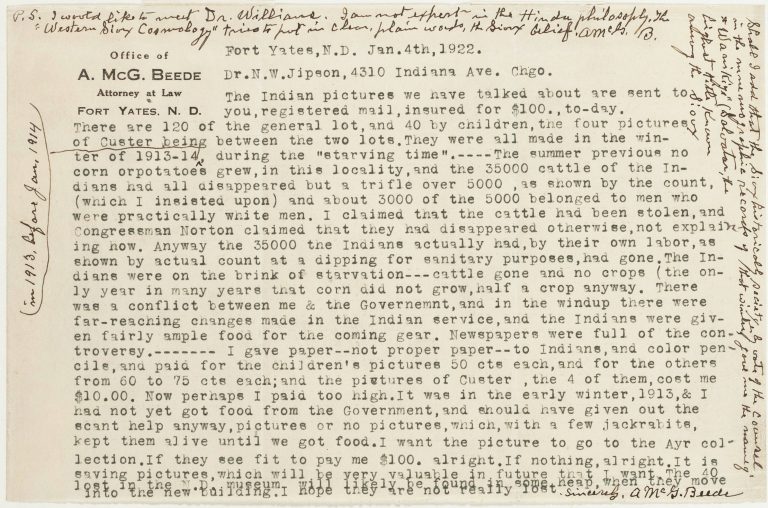 P.S. I would like to meet Dr. Williams. I am not expert in the Hindu philosophy. The
"Western Sioux Cosmology" tries to put in clear, plain words, the Sioux belief. A McG. B.
Office of
A. McG. BEEDE
Attorney at Law
FORT YATES, N. D.
Fort Yates,N.D. Jan.4th,1922.
Dr.N.W.Jipson,4310 Indiana Ave. Chgo.
The Indian pictures we have talked about are sent to
you,registered mail,insured for $100.,to-day.
There are 120 of the general lot,and 40 by children,the four pictures
of Custer being between the two lots.They were all made in the win-
ter of 1913-14, during the "starving time".----The summer previous no
corn orpotatoes grew,in this locality,and the 35000 cattle of the In-
dians had all disappeared but a trifle over 5000 ,as shown by the count,
(which I insisted upon) and about 3000 of the 5000 belonged to men who
were practically white men. I claimed that the cattle had been stolen,and
Congressman Norton claimed that they had disappeared otherwise,not explain
ing how. Anyway the 35000 the Indians actually had,by their own labor,as
shown by actual count at a dipping for sanitary purposes,had gone.The In-
dians were on the brink of starvation---cattle gone and no crops (the on-
ly year in many years that corn did not grow,half a crop anyway. There
was a conflict between me & the Governemnt,and in the windup there were
far-reaching changes made in the Indian service,and the Indians were giv-
en fairly ample food for the coming gear. Newspapers were full of the con-
troversy.------- I gave paper--not proper paper--to Indians,and color pen-
cils,and paid for the children's pictures 50 cts each,and for the others
from 60 to 75 cts each;and the pictures of Custer ,the 4 of them,cost me
$10.00. Now perhaps I paid too high.It was in the early winter,1913,& I
had not yet got food from the Government,and should have given out the
scant help anyway,pictures or no pictures,which,with a few jackrabits,
kept them alive until we got food.I want the picture to go to the Ayr col-
lection.If they see fit to pay me $100. alright.If nothing,alright.It is
saving pictures,which will be very valuable in future that I want.The 40
lost in the N.D. museum will likely be found in some heap,when they move
into the new building.I hope they are not really lost.
Sincerely, A McG. Beede
(in 1913, before Jan, 1914)
Shall I add that the Sioux historical society, by vote of the Counsel,
in the names of that winter, gave me the name
"Waanikiya" (Salvator), the
highest title known
among the Sioux